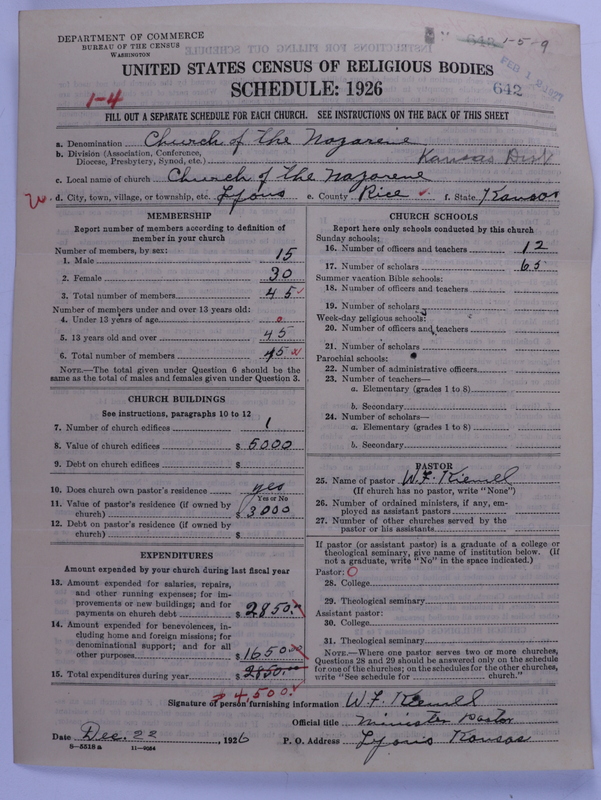 DEPARTMENT OF COMMERCE
BUREAU OF THE CENSUS
WASHINGTON
642 1-5-9
UNITED STATES CENSUS OF RELIGIOUS BODIES
SCHEDULE: 1926
1-4
642
FILL OUT A SEPARATE SCHEDULE FOR EACH CHURCH. SEE INSTRUCTIONS ON THE BACK OF THIS SHEET
a. Denomination Church of the Nazarene
b. Division (Association, Conference, Diocese, Presbytery, Synod, etc.) Kansas Dist
c. Local name of church Church of the Nazarene
d. City, town, village, or township, etc. Lyons e. County Rice f. State Kansas
MEMBERSHIP
Report number of members according to definition of
member in your church
Number of members, by sex:
1. Male 15
2. Female 30
3. Total number of members 45
Number of members under and over 13 years old:
4. Under 13 years of age 0
5. 13 years old and over 45
6. Total number of members 45
NOTE.—The total given under Question 6 should be the
same as the total of males and females given under Question 3.
CHURCH BUILDINGS
See instructions, paragraphs 10 to 12
7. Number of church edifices 1
8. Value of church edifices $ 5000
9. Debt on church edifices $
10. Does church own pastor's residence yes
Yes or No
11. Value of pastor's residence (if owned by
church) $ 3000
12. Debt on pastor's residence (if owned by
church) $
EXPENDITURES
Amount expended by your church during last fiscal year
13. Amount expended for salaries, repairs,
and other running expenses; for im-
provements or new buildings; and for
payments on church debt $ 2850.
14. Amount expended for benevolences, in-
cluding home and foreign missions; for
denominational support; and for all
other purposes $ 1650.00
15. Total expenditures during year $ 2850.00
4,500.
CHURCH SCHOOLS
Report here only schools conducted by this church
Sunday schools:
16. Number of officers and teachers 12
17. Number of scholars 65
Summer vacation Bible schools:
18. Number of officers and teachers
19. Number of scholars
Week-day religious schools:
20. Number of officers and teachers
21. Number of scholars
Parochial schools:
22. Number of administrative officers
23. Number of teachers—
a. Elementary (grades 1 to 8)
b. Secondary
24. Number of scholars—
a. Elementary (grades 1 to 8)
b. Secondary
PASTOR
25. Name of pastor W. F. Kiemel
(If church has no pastor, write "None")
26. Number of ordained ministers, if any, em-
ployed as assistant pastors
27. Number of other churches served by the
pastor or his assistants
If pastor (or assistant pastor) is a graduate of a college or
theological seminary, give name of institution below. (If
not a graduate, write "No" in the space indicated.)
Pastor: O
28. College
29. Theological seminary
Assistant pastor:
30. College
31. Theological seminary
NOTE.—Where one pastor serves two or more churches,
Questions 28 and 29 should be answered only on the schedule
for one of the churches; on the schedules for the other churches,
write "See schedule for church."
Signature of person furnishing information W. F. Kiemel
Official title Minister Pastor
Date Dec. 22, 1926 P. O. Address Lyons Kansas
8-5518 a 11-9054